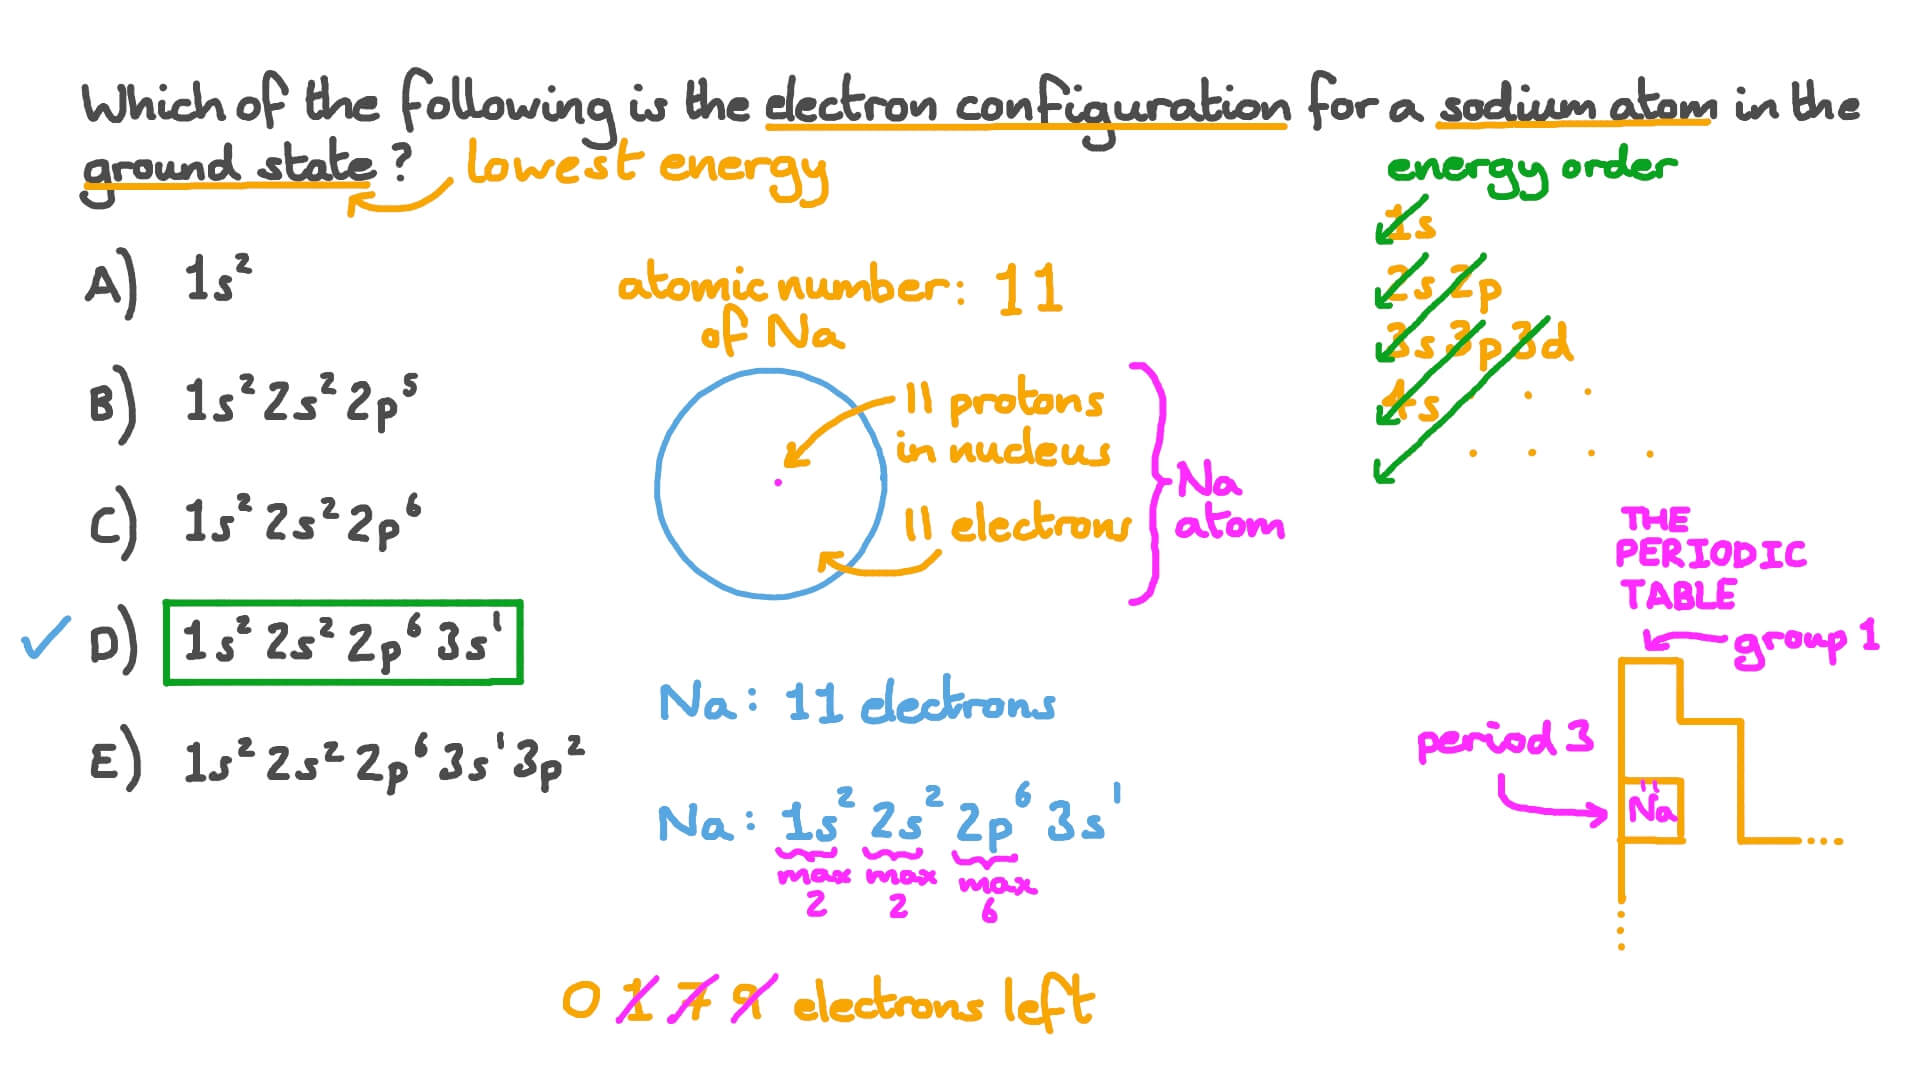 Which of the following is the electron configuration for a sodium atom in the
ground state?
lowest energy
A) 1s²
B) 1s² 2s² 2p⁵
C) 1s² 2s² 2p⁶
D) 1s² 2s² 2p⁶ 3s¹
E) 1s² 2s² 2p⁶ 3s¹ 3p²
atomic number: 11
of Na
11 protons
in nucleus
11 electrons
Na
atom
Na: 11 electrons
Na: 1s² 2s² 2p⁶ 3s¹
max max max
2 2 6
0 1 7 9 electrons left
energy order
1s
2s 2p
3s 3p 3d
4s . . .
. . . .
THE
PERIODIC
TABLE
group 1
period 3
11
Na